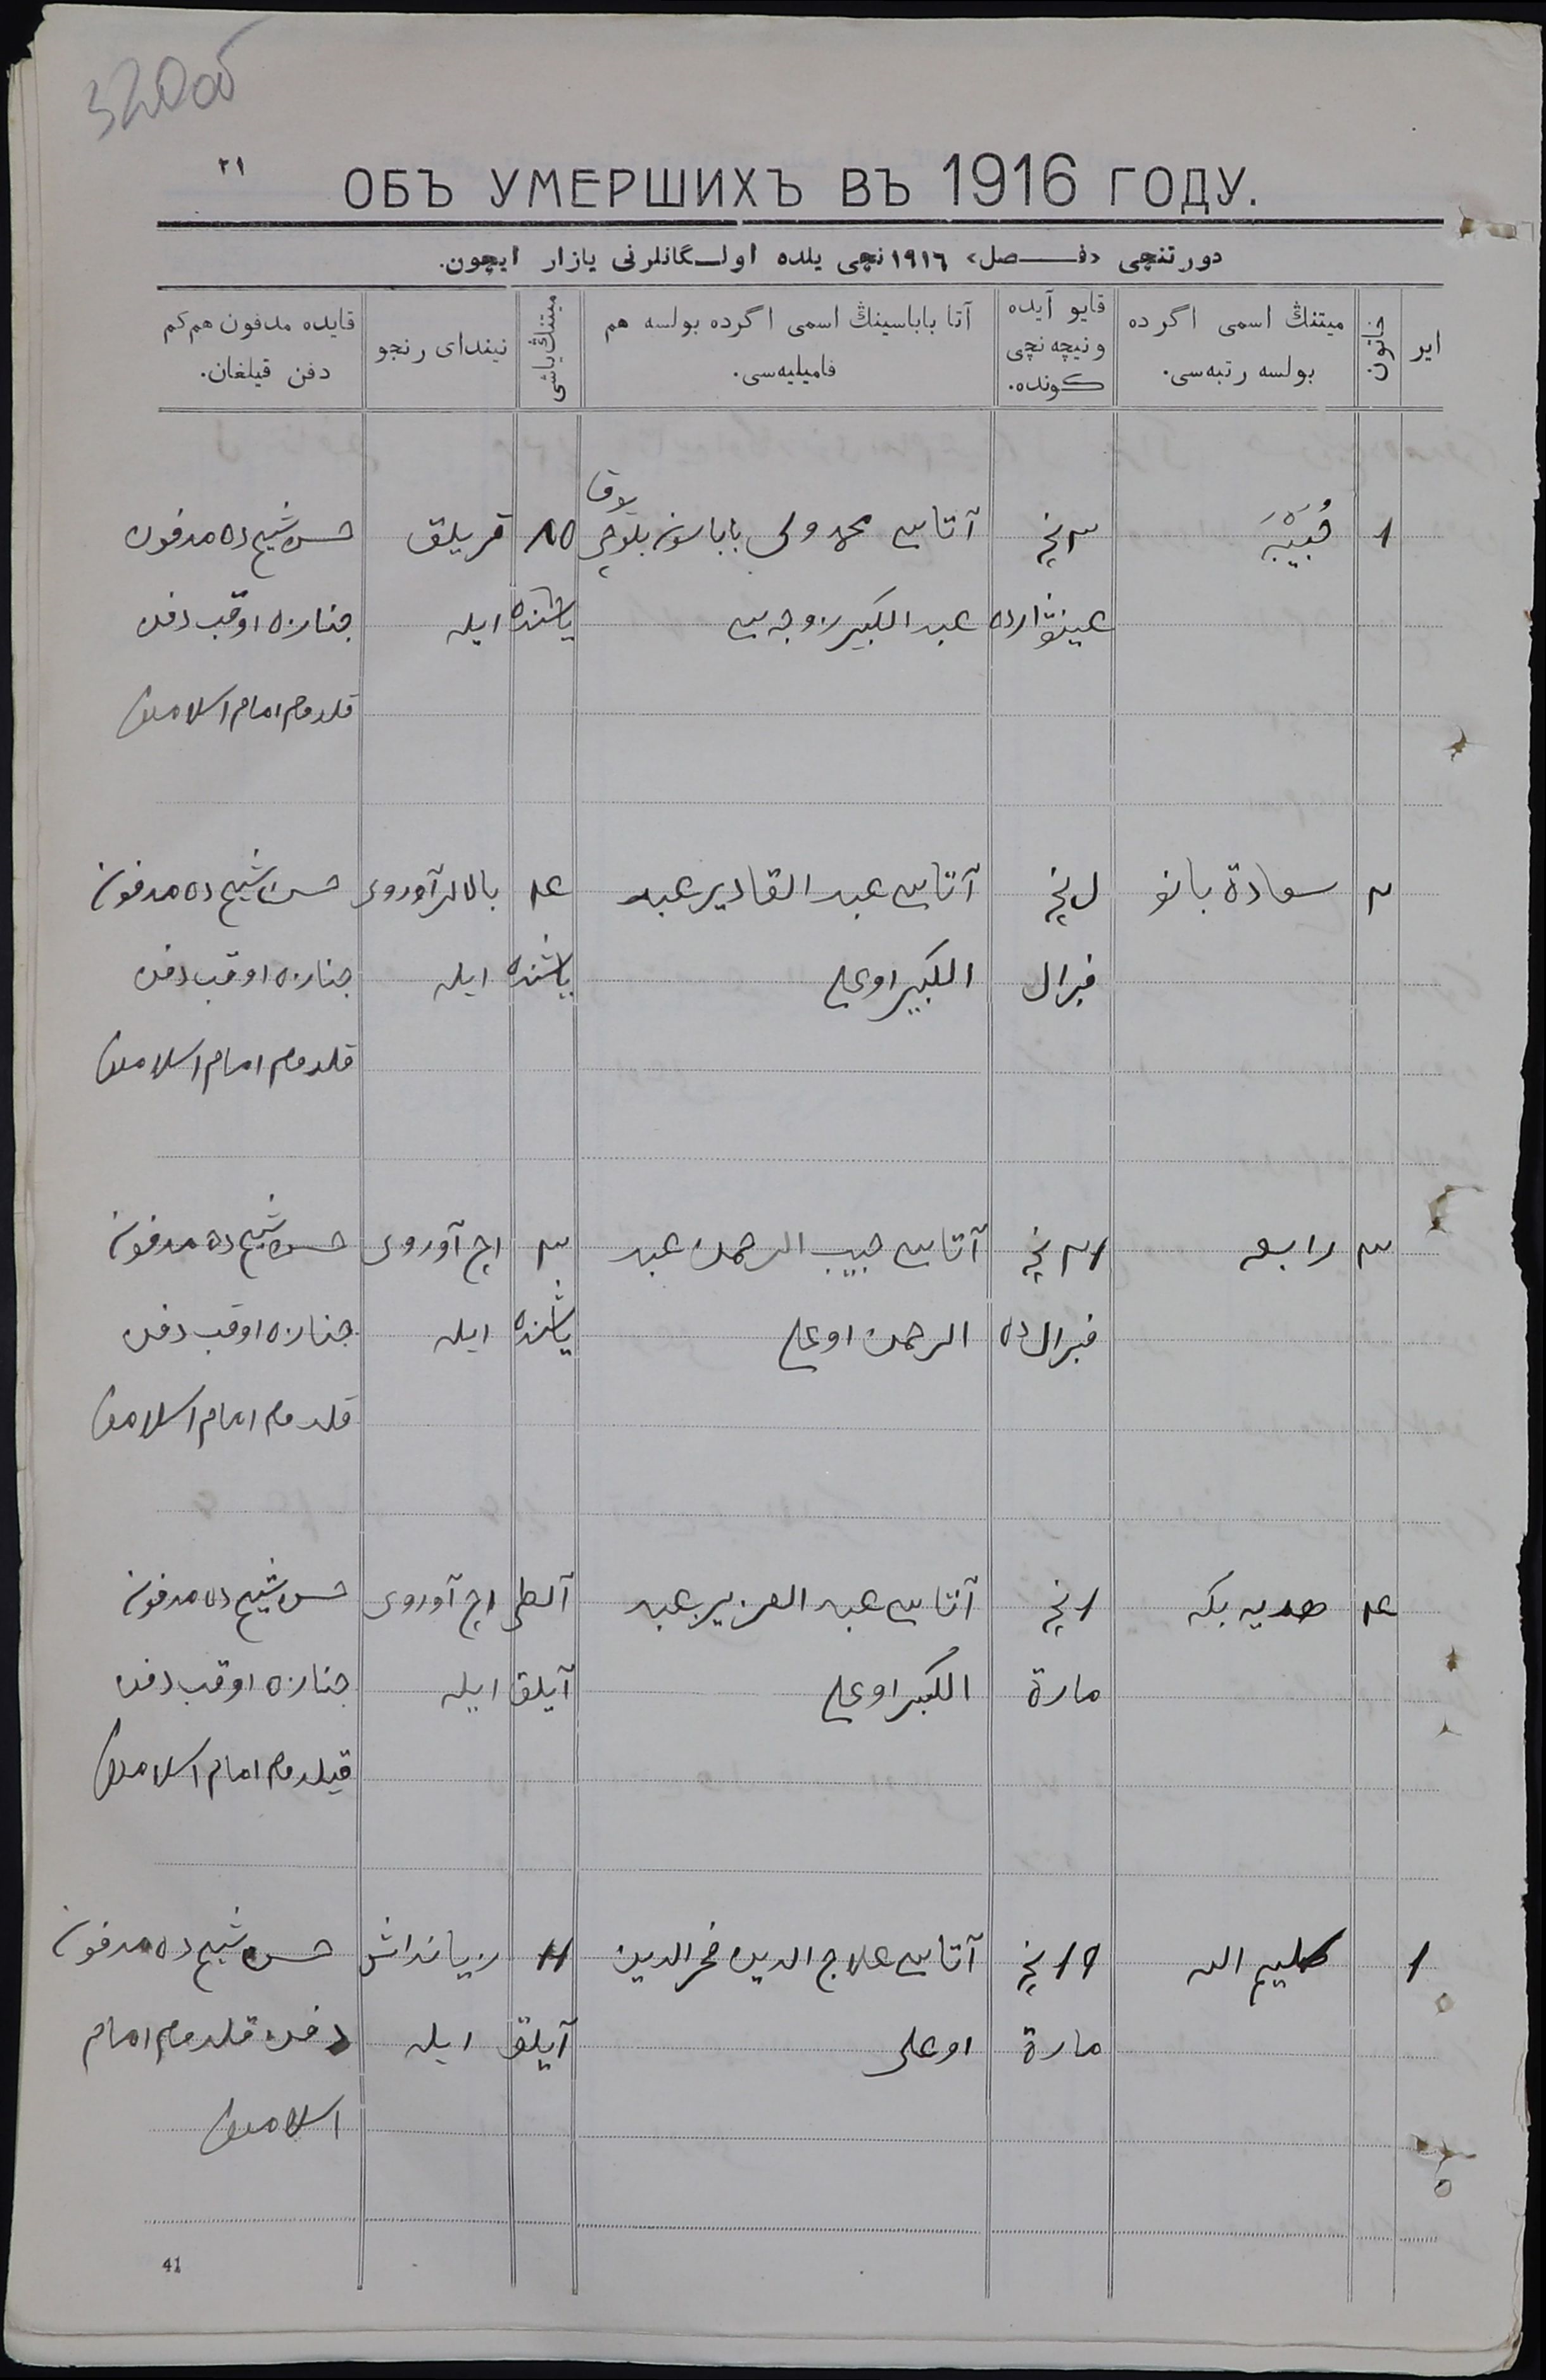 320об
٢١
ОБЪ УМЕРШИХЪ ВЪ 1916 ГОДУ.
دورتنچی «فـــصل» ١٩١٦نچی یلده اولــگانلرنی یازار ایچون.
ایر
خاتون
میتنڭ اسمی اگرده بولسه رتبه‌سی.
قایو آیده ونیچه‌نچی کونده.
آتا باباسینڭ اسمی اگرده بولسه هم فامیلیه‌سی.
میتنڭ یاشی
نیندای رنجو
قایده مدفون هم‌کم دفن قیلغان.
١ حُبَیْبَه ٣نچی آتاسی محمد ولی باباسون ٨٥ قریلق حسن شیخ ده مدفون
غینوارده عبد الکبیر زوجه سی یاشنده ایله جنازه اوقب دفن
قلدوم امام
٢ سعادة بانو نچی آتاسی عبد القادیر عبد ٤ بالالر آوروی حسن شیخ ده مدفون
فبرال الکبیر اوغلی یاشنده ایله جنازه اوقب دفن
قلدوم امام
٣ رابعه ١٢نچی آتاسی حبیب الرحمن عبد ٣ اچ آوروی حسن شیخ ده مدفون
فبرال ده الرحمن اوغلی یاشنده ایله جنازه اوقب دفن
قلدوم امام
٤ هدیه بکه ١نچی آتاسی عبد العزیز عبد آلطی اچ آوروی حسن شیخ ده مدفون
مارة الکبیر اوغلی آیلق ایله جنازه اوقب دفن
قیلدوم امام
١ کلیم الله ١٩نچی آتاسی علاج الدین فخر الدین ١١ زیانداش حسن شیخ ده مدفون
مارة اوغلی آیلق ایله دفن قلدوم امام
41